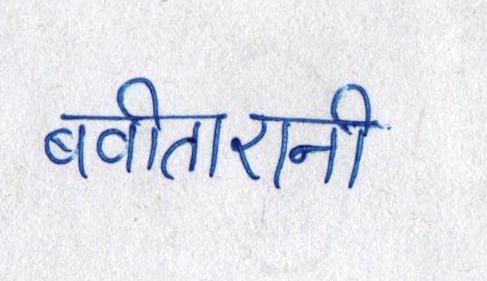 बवीता रानी